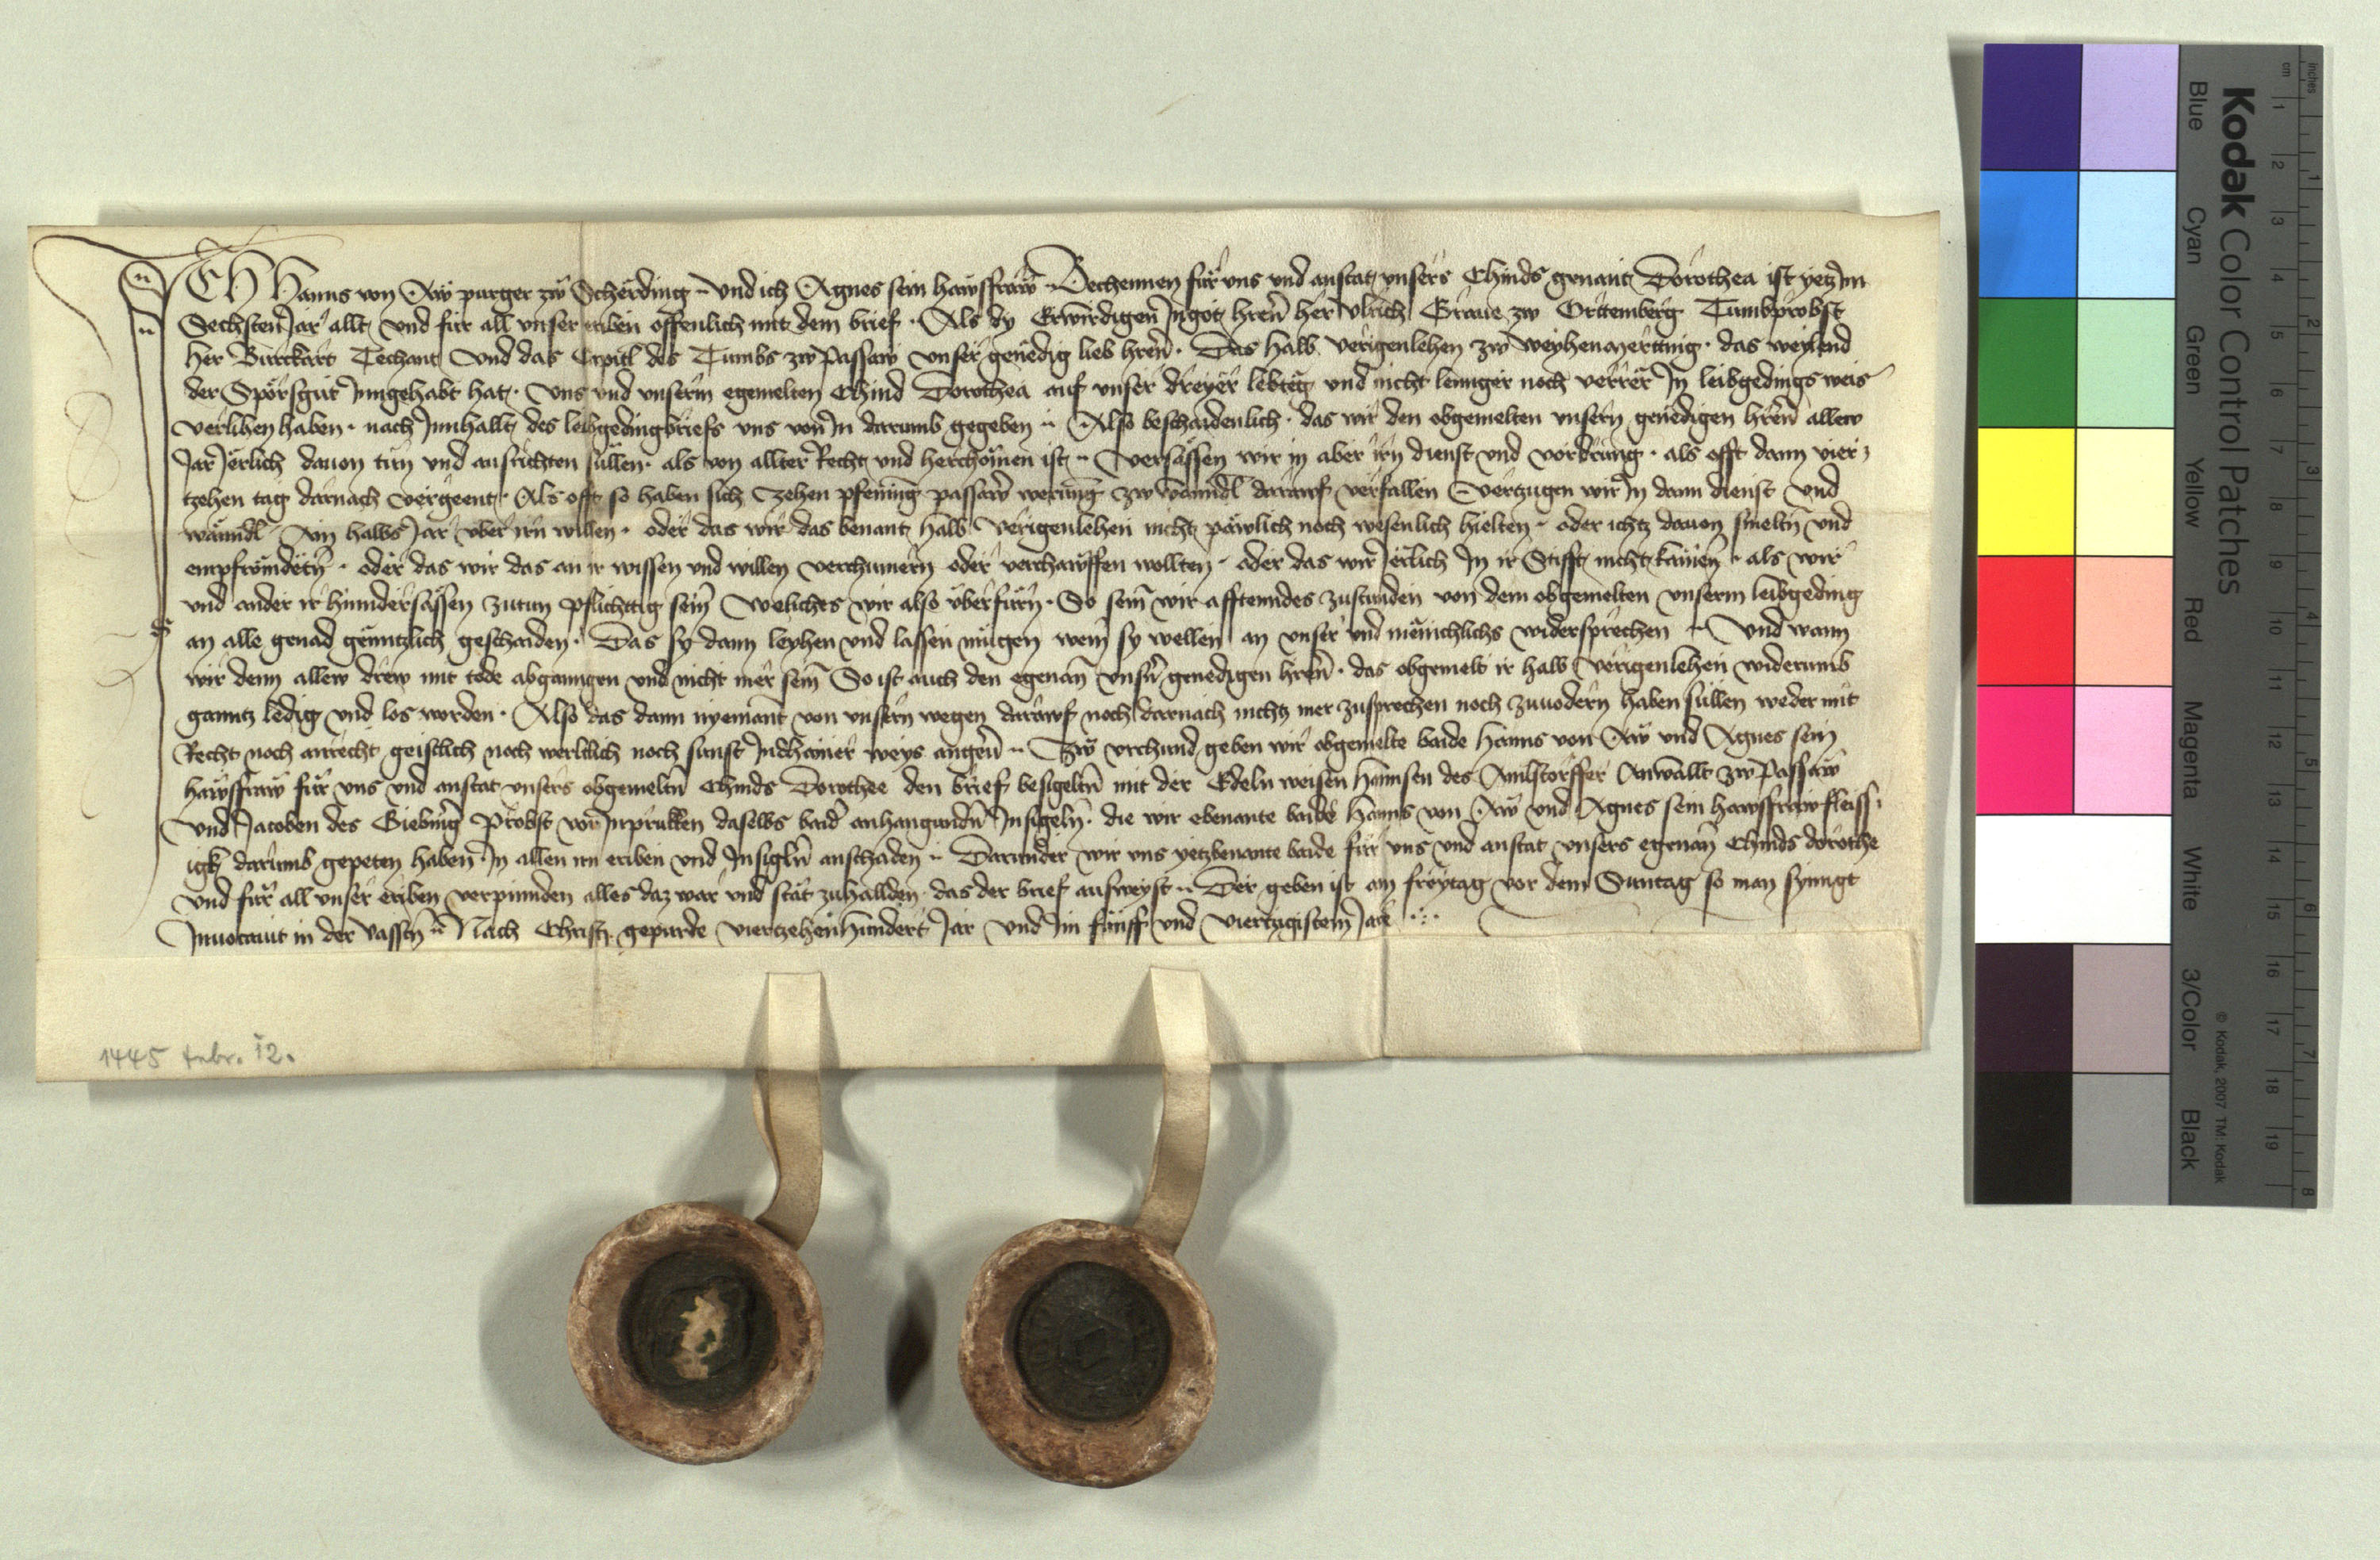 ICH Hanns von Aw purger zw Scherding und ich Agnes sein hawsfraw Bechennen für uns und anstat unsers Chinds genant Dorothea ist yetz Im
Sechsten Jar allt und für all unser eriben offenlich mit dem brief · Als dy Erwirdigen Ingot hren her Ulrich Graue zw Orttemberg Tumbprobst
her Burckart Techant und das Capitl des Tumbs zw Passaw unser genedig lieb hren · Das halb verigenlehen zw weyhenmerttnig · das weylend
der Spörsgut Inngehabt hat · uns und unserm egemelten Chind Dorothea auf unser dreyer lebteg und nicht lennger noch verrer In leibgedings weis
verlihen haben · nach Innhallt des leibgedingbriefs uns von In darumb gegeben · Also beschaidenlich · das wir den obgemelten unsern genedigen hren allew
Jar Jerlich dauon tun und ausrichten süllen · als von allter Recht und herchömen ist · Versässen wir in aber irn dienst und vordrung · als offt dann vier
tzehen tag darnach vergeent · Als offt so haben sich zehen pfening passawer werung zw wanndl darauf verfallen Vertzugen wir In dann dienst und
wänndl Ain halbs Jar uber irn willen · oder das wir das benant halb verigenlehen nicht päwlich noch wesenlich hielten · oder ichtz dauon smeltn und
empfrömdetn · oder das wir das an ir wissen und willen verchumern oder verchawffen wollten · oder das wir Jerlich In ir Stifft nicht kämen · als wir
und ander ir hinndersässen zutun pflichttig sein weliches wir also überfürn · So sein wir afftenndes zustunden von dem obgemelten unserm leibgeding
an alle genad gënntzlich geschaiden · Das sy dann leyhen und lassen mügen wem sy wellen an unser und mënichlichs widersprechen · Und wann
wir denn allew drew mit tode abgangen und nicht mer sein So ist auch den egenan unsern genedigen hren · das obgemelt ir halb verigenlehen widerumb
ganntz ledig und los worden · Also das dann nyemant von unsern wegen darauf noch darnach nichtz mer zusprechen noch zuuodern haben süllen weder mit
Recht noch anrecht geistlich noch werltlich noch sunst Indhainer weys angern · Zw urchund geben wir obgemelte baide Hanns von Aw und Agnes sein
hawsfraw für uns und anstat unsers obgemeltn Chinds Dorothee den brief besigeltn mit der Edeln weisen Hannsen des Amlstorffer Anwallt zw Passaw
und Jacoben des Giebing Probst vor Inprukken daselbs baid anhangundn Insigeln · die wir ebenante baide Hanns von Aw und Agnes sein hawsfraw fleiss
igk darumb gepeten haben In allen irn eriben und Insigln anschaden · Darunder wir uns yetzbenante baide für uns und anstat unsers egenan Chinds dorothe
und für all unser eriben verpinnden alles daz war und stät zuhallden · das der brief ausweyst · Der geben ist am freytag vor dem Suntag so man synngt
Inuocauit in der vassten · Nach Christi gepurde viertzehenhundert Jar und Im fünff und viertzigistem Jare
1445 febr. 12.
Kodak Color Control Patches
Blue Cyan Green Yellow Red Magenta White 3/Color Black
© Kodak, 2007 TM: Kodak
cm 1 2 3 4 5 6 7 8 9 10 11 12 13 14 15 16 17 18 19
inches 1 2 3 4 5 6 7 8